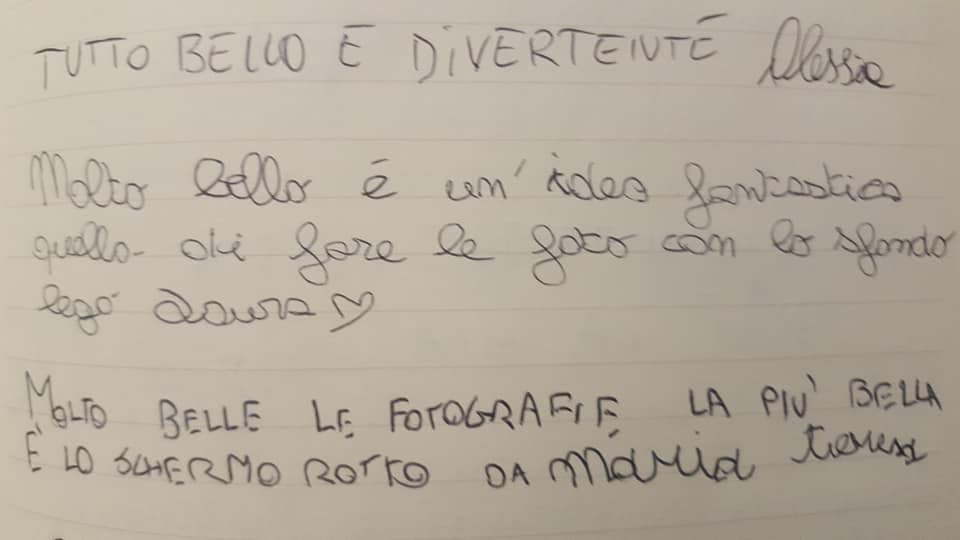 TUTTO BELLO E DIVERTENTE Alessia
Molto bello é un' idea fantastica
quello di fare le foto con lo sfondo
lego Laura ♡
MOLTO BELLE LE FOTOGRAFIE, LA PIU' BELLA
È LO SCHERMO ROTTO DA Maria teresa